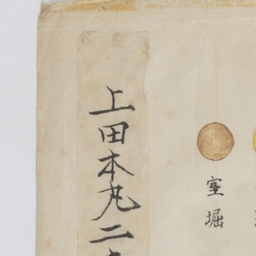 上田本丸二
空堀